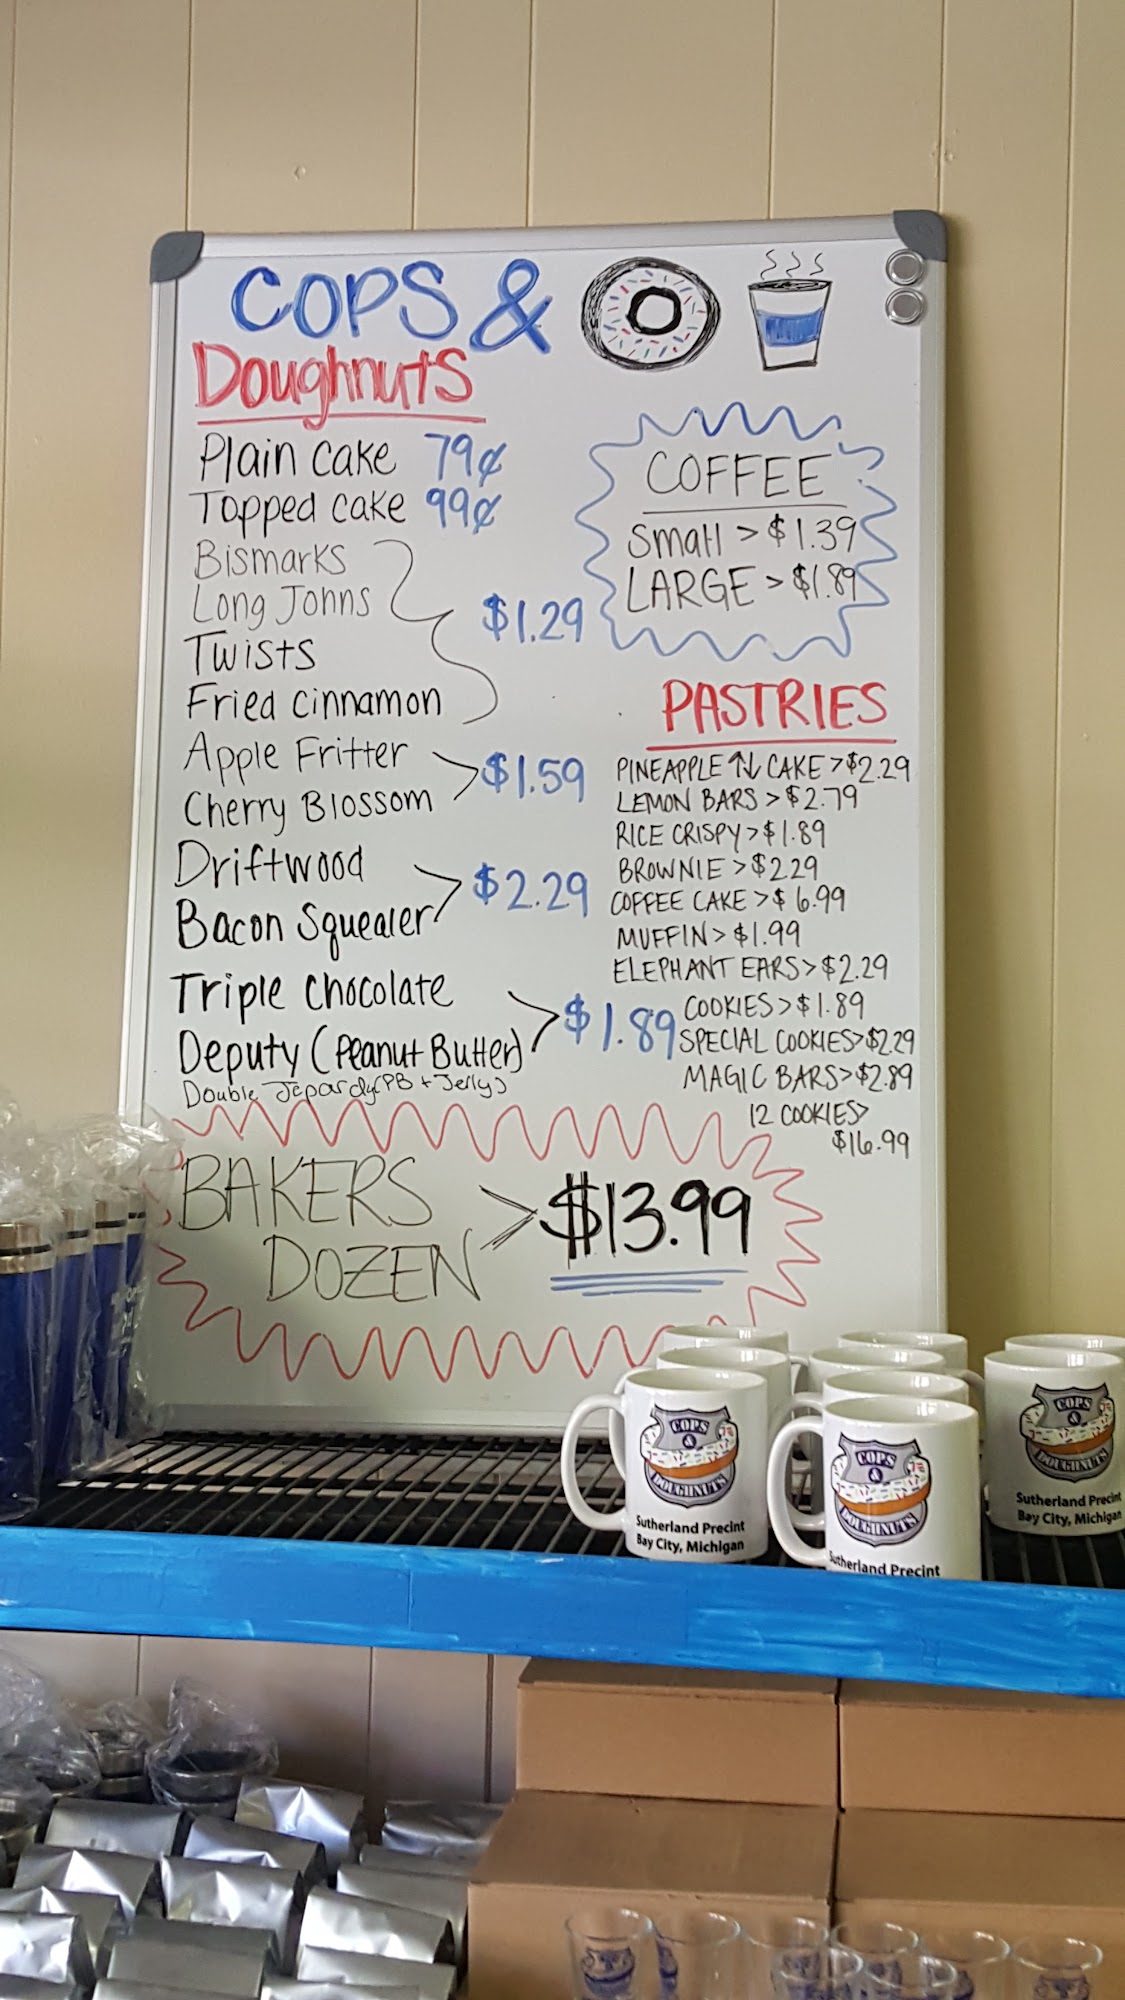 COPS &
Doughnuts
Plain cake 79¢
Topped cake 99¢
Bismarks
Long Johns
Twists
Fried cinnamon
$1.29
Apple Fritter
Cherry Blossom
$1.59
Driftwood
Bacon Squealer
$2.29
Triple chocolate
Deputy (Peanut Butter)
$1.89
Double Jepardy (PB + Jelly)
COFFEE
Small > $1.39
LARGE > $1.89
PASTRIES
PINEAPPLE ↑↓ CAKE > $2.29
LEMON BARS > $2.79
RICE CRISPY > $1.89
BROWNIE > $2.29
COFFEE CAKE > $6.99
MUFFIN > $1.99
ELEPHANT EARS > $2.29
COOKIES > $1.89
SPECIAL COOKIES > $2.29
MAGIC BARS > $2.89
12 COOKIES >
$16.99
BAKERS
DOZEN
> $13.99
COPS
&
DOUGHNUTS
Sutherland Precint
Bay City, Michigan
COPS
&
DOUGHNUTS
Sutherland Precint
COPS
&
DOUGHNUTS
Sutherland Precint
Bay City, Michigan